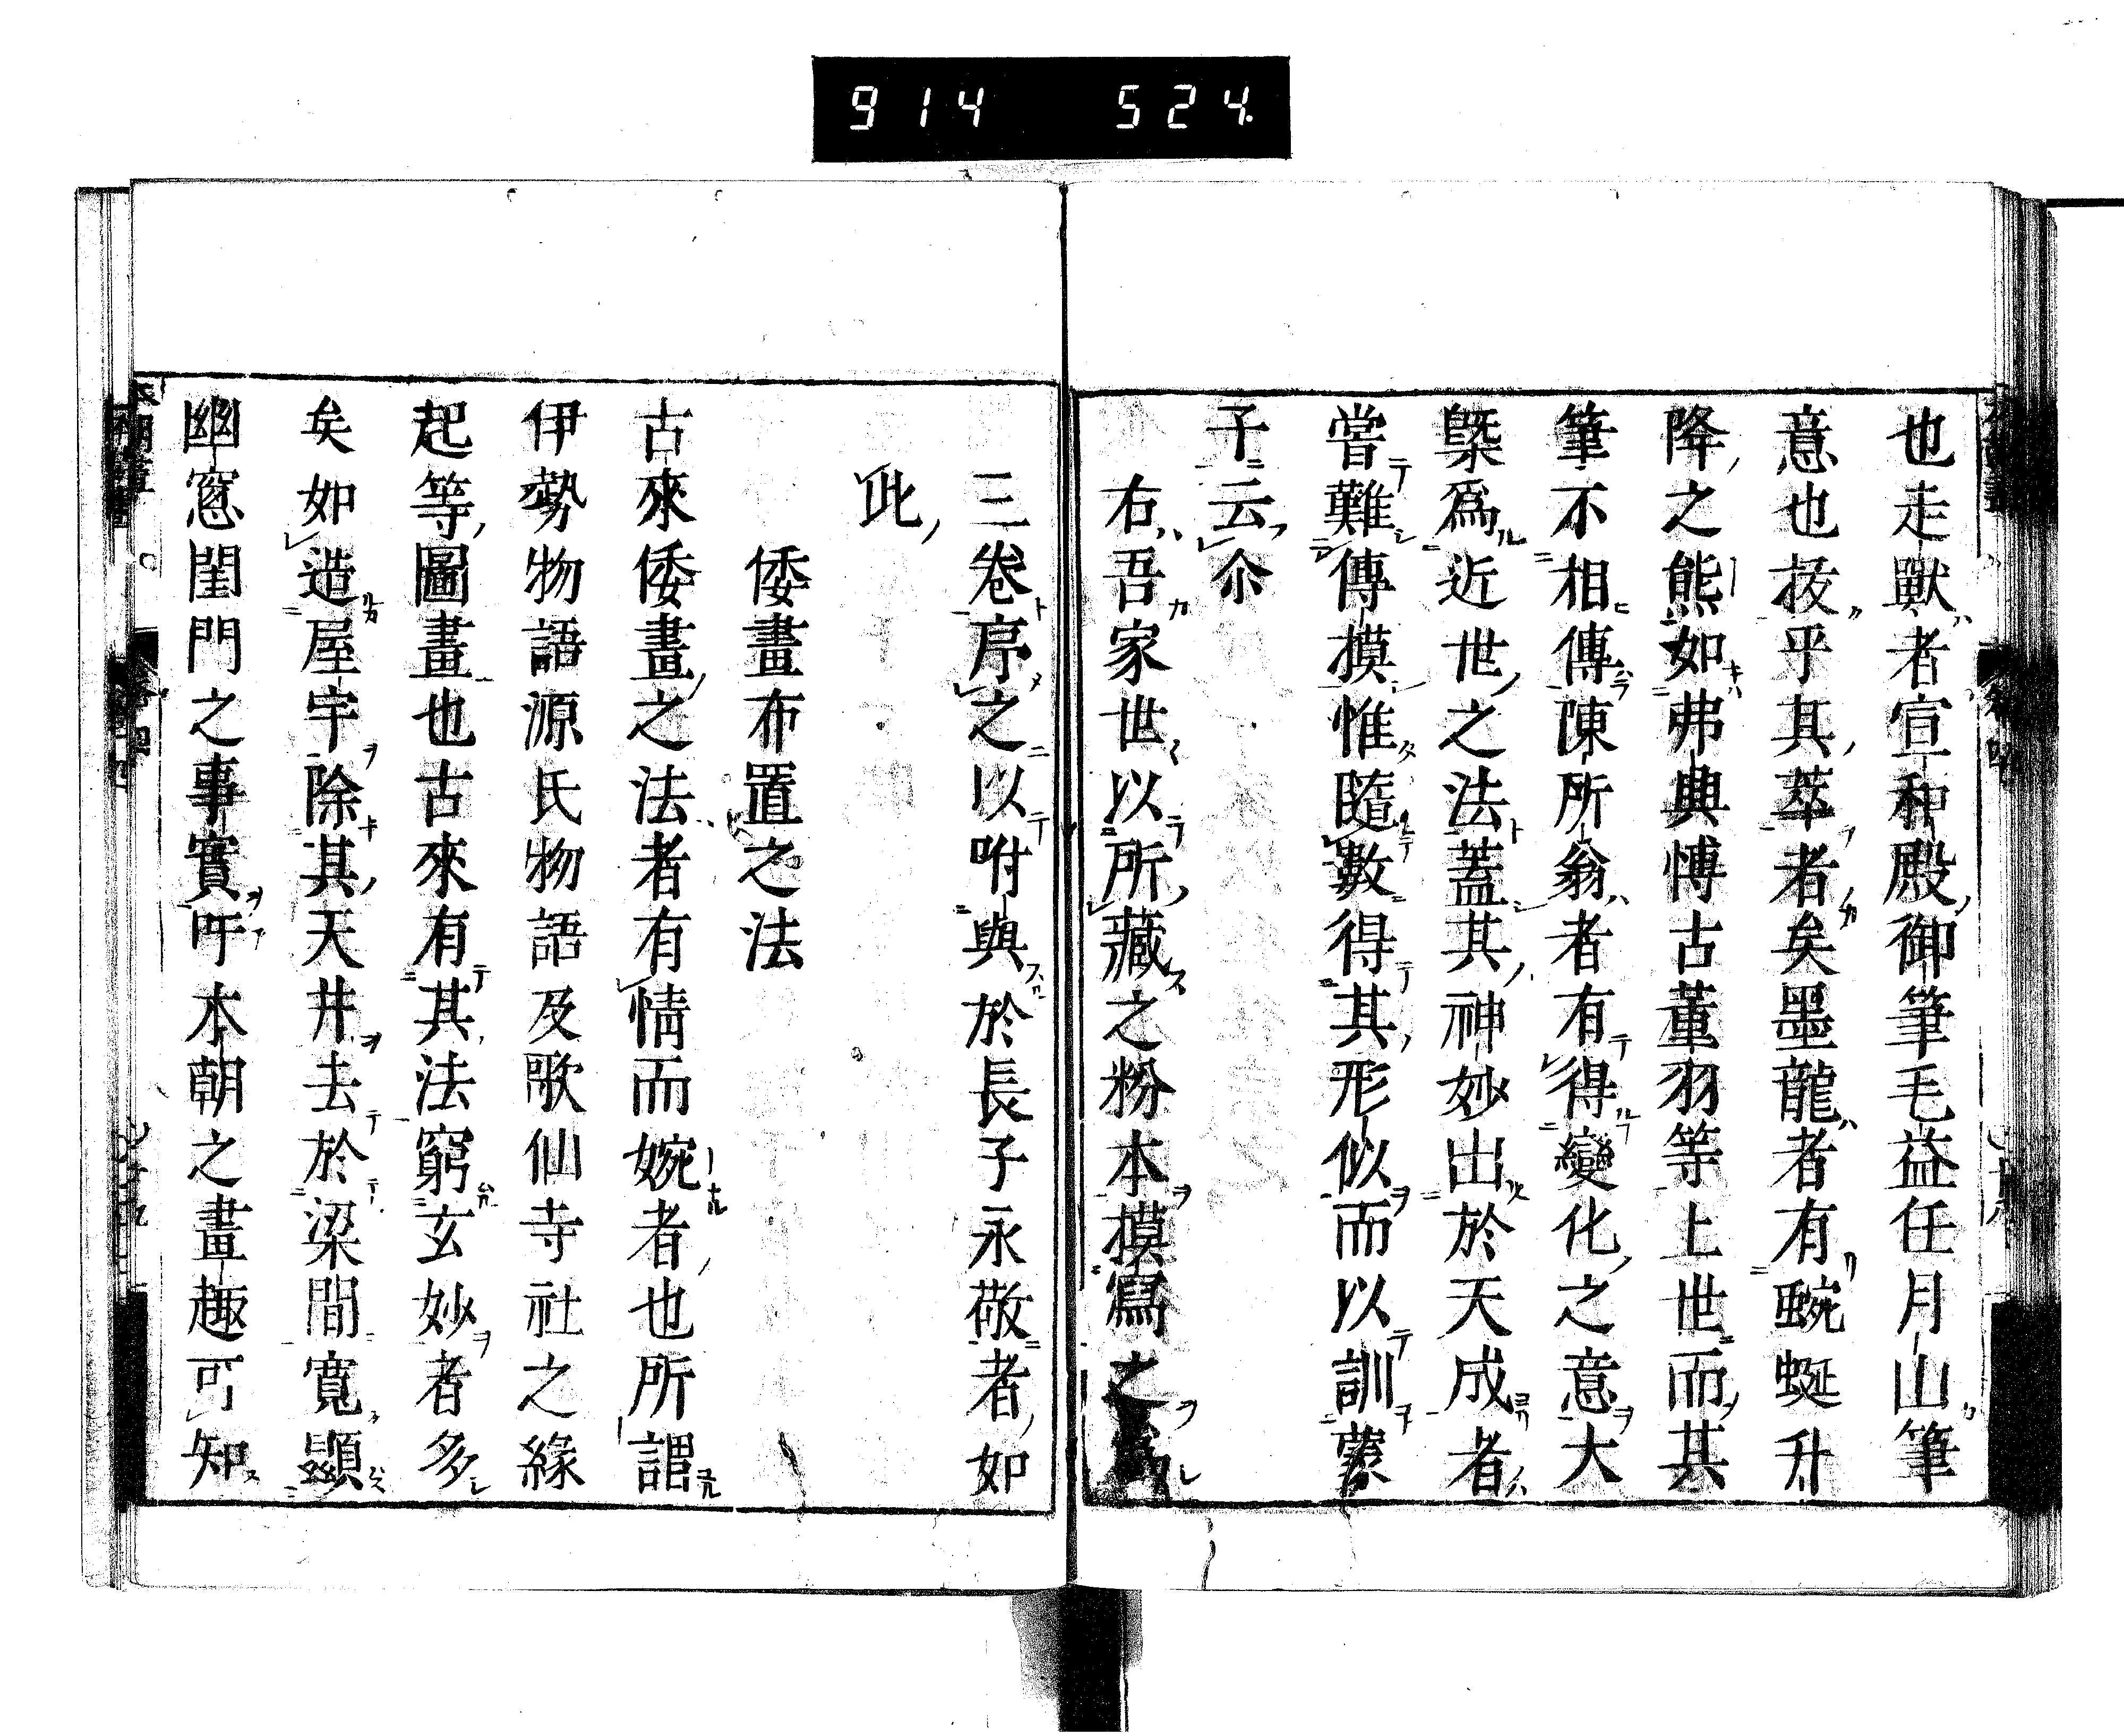 914 524.
也走獸者宣和殿御筆毛益任月山筆
意也拔乎其萃者矣墨龍者有蜿蜒升
降之熊如弗典博古董羽等上世而其
筆不相傳陳所翁者有得變化之意大
槩爲近世之法蓋其神妙出於天成者
嘗難傳摸惟隨數得其形似而以訓蒙
子云尒
右吾家世以所藏之粉本摸寫之爲
三卷序之以咐與於長子永敬者如
此
倭畫布置之法
古來倭畫之法者有情而婉者也所謂
伊勢物語源氏物語及歌仙寺社之緣
起等圖畫也古來有其法窮玄妙者多
矣如造屋宇除其天井去於梁間寬顯
幽窓閨門之事實吁本朝之畫趣可知